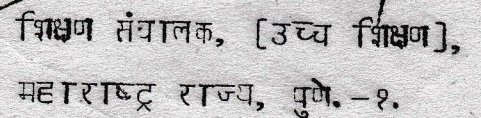 शिक्षण संचालक, [उच्च शिक्षण],
महाराष्ट्र राज्य, पुणे.-१.